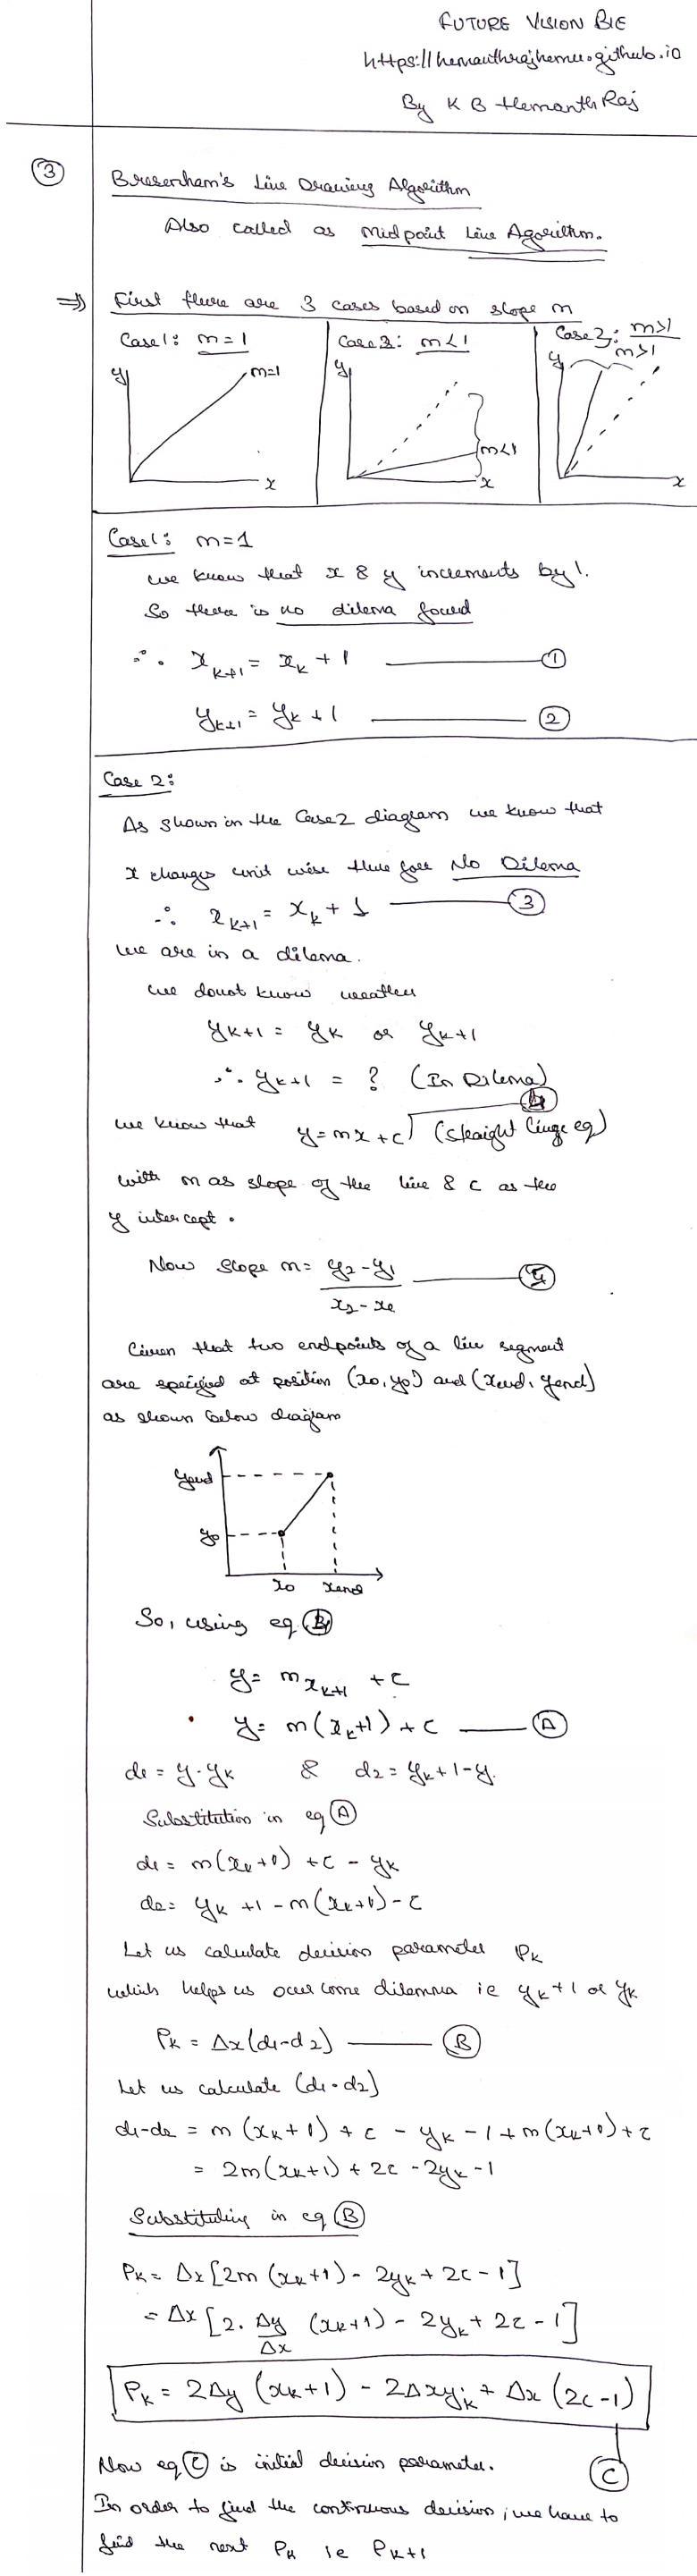 FUTURE VISION BIE
https://hemanthrajhemu.github.io
By K B Hemanth Raj
③ Bresenham's Line Drawing Algorithm
Also called as Midpoint Line Agorithm.
⇒ First there are 3 cases based on slope m
Case1: m=1
y
m=1
x
Case 2: m<1
y
m<1
x
Case 3: m>1
m>1
y
x
Case1: m=1
we know that x & y increments by 1.
So there is no dilema found
∴ x_{k+1} = x_k + 1 ——— ①
y_{k+1} = y_k + 1 ——— ②
Case 2:
As shown in the Case2 diagram we know that
x changes unit wise there fore No Dilema
∴ x_{k+1} = x_k + 1 ——— ③
we are in a dilema.
we donot know weather
y_{k+1} = y_k or y_k+1
∴ y_{k+1} = ? (In Dilema)
we know that y = mx + c (straight line eq)
with m as slope of the line & c as the
y intercept.
Now slope m = y₂-y₁ / x₂-x₁
Given that two endpoints of a line segment
are specified at position (x0, y0) and (xend, yend)
as shown below diagram
yend
y0
x0 xend
So, using eq
y = m x_{k+1} + c
y = m(x_k+1) + c ——— Ⓐ
d1 = y - y_k & d2 = y_k + 1 - y.
Substitution in eq Ⓐ
d1 = m(x_k+1) + c - y_k
d2 = y_k + 1 - m(x_k+1) - c
Let us calculate decision parameter P_k
which helps us over come dilemma ie y_k+1 or y_k
P_k = Δx(d1-d2) ——— Ⓑ
Let us calculate (d1-d2)
d1-d2 = m(x_k+1) + c - y_k - 1 + m(x_k+1) + c
= 2m(x_k+1) + 2c - 2y_k - 1
Substituting in eq Ⓑ
P_k = Δx[2m(x_k+1) - 2y_k + 2c - 1]
= Δx[2. Δy/Δx (x_k+1) - 2y_k + 2c - 1]
P_k = 2Δy (x_k+1) - 2Δxy_k + Δx (2c-1)
Ⓒ
Now eq Ⓒ is initial decision parameter.
In order to find the continuous decision, we have to
find the next P_k ie P_{k+1}